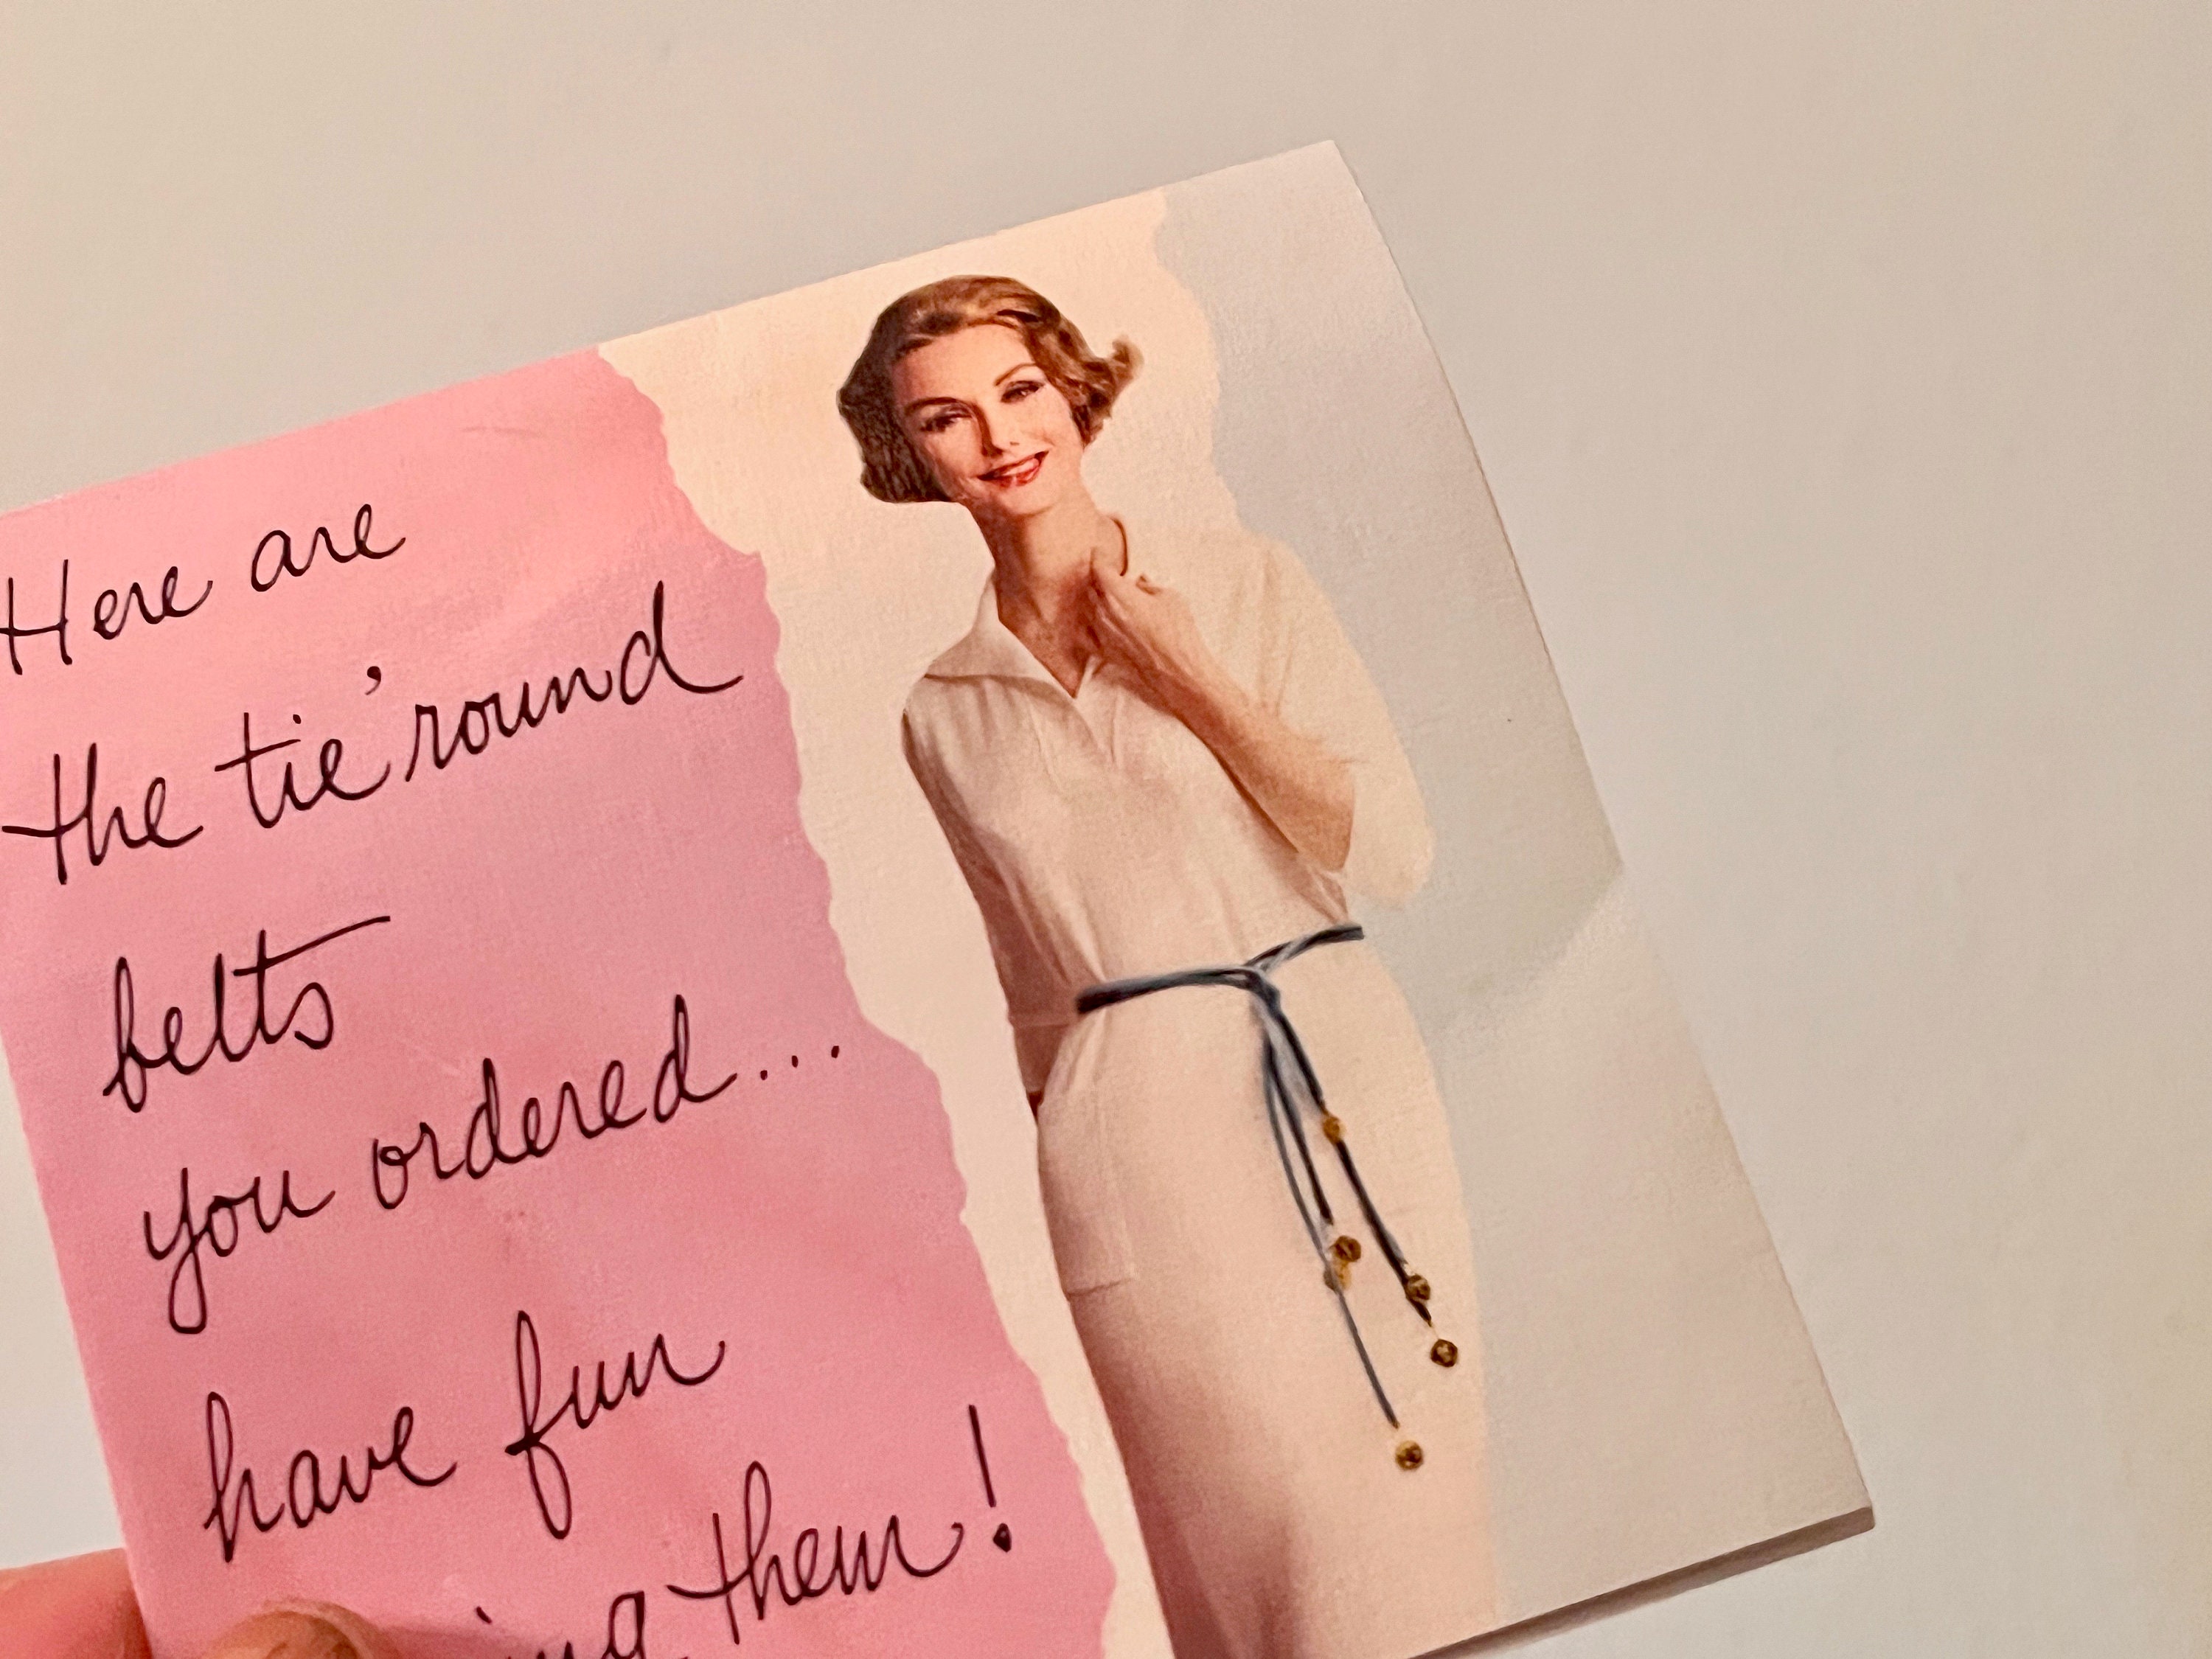 Here are
the tie 'round
belts
you ordered...
have fun
them!